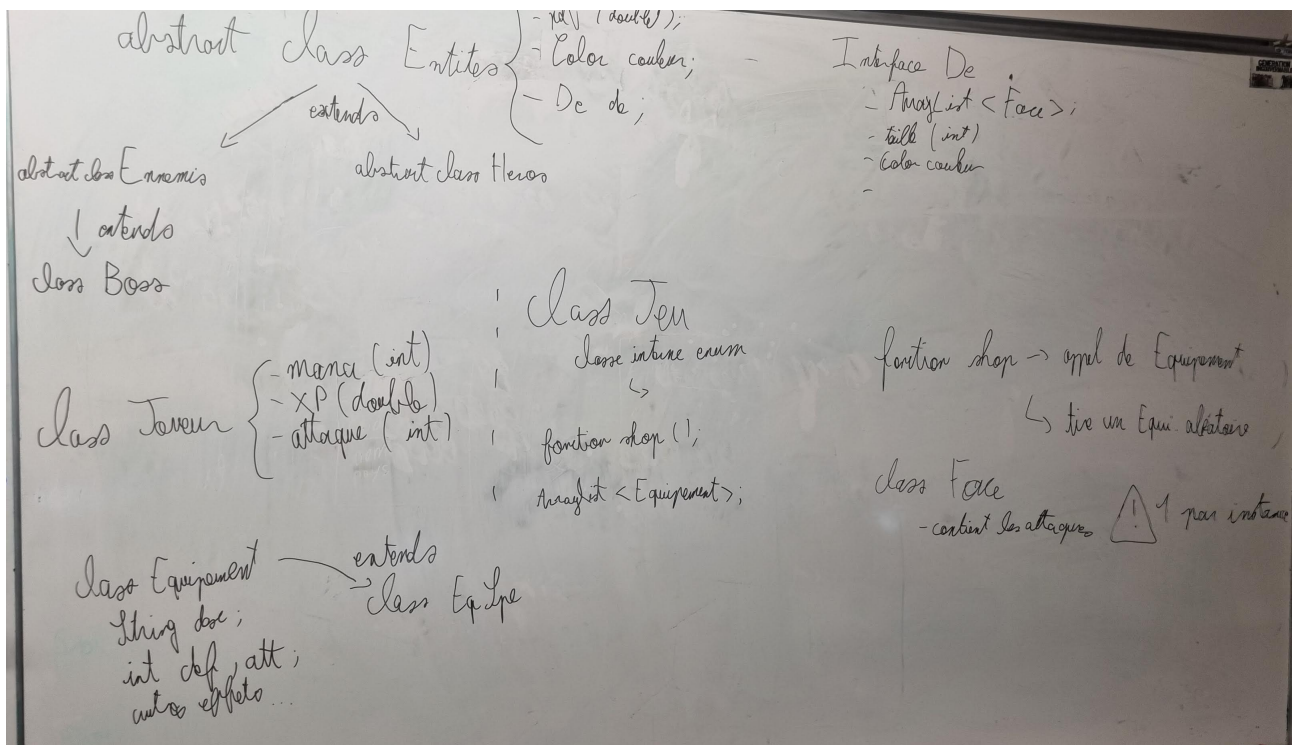 - pdv (double);
abstract class Entites {
- Color couleur;
- De de;
extends
abstract class Ennemis
abstract class Heros
extends
class Boss
Interface De
- ArrayList <Face>;
- taille (int)
- Color couleur
-
class Joueur {
- mana (int)
- XP (double)
- attaque (int)
class Jeu
classe interne enum
fonction shop ();
ArrayList <Equipement>;
fonction shop → appel de Equipement
↳ tire un Equi. aléatoire
class Face
- contient les attaques ! 1 par instance
class Equipement
String dose;
int def, att;
autres effets...
extends
class EqSpe